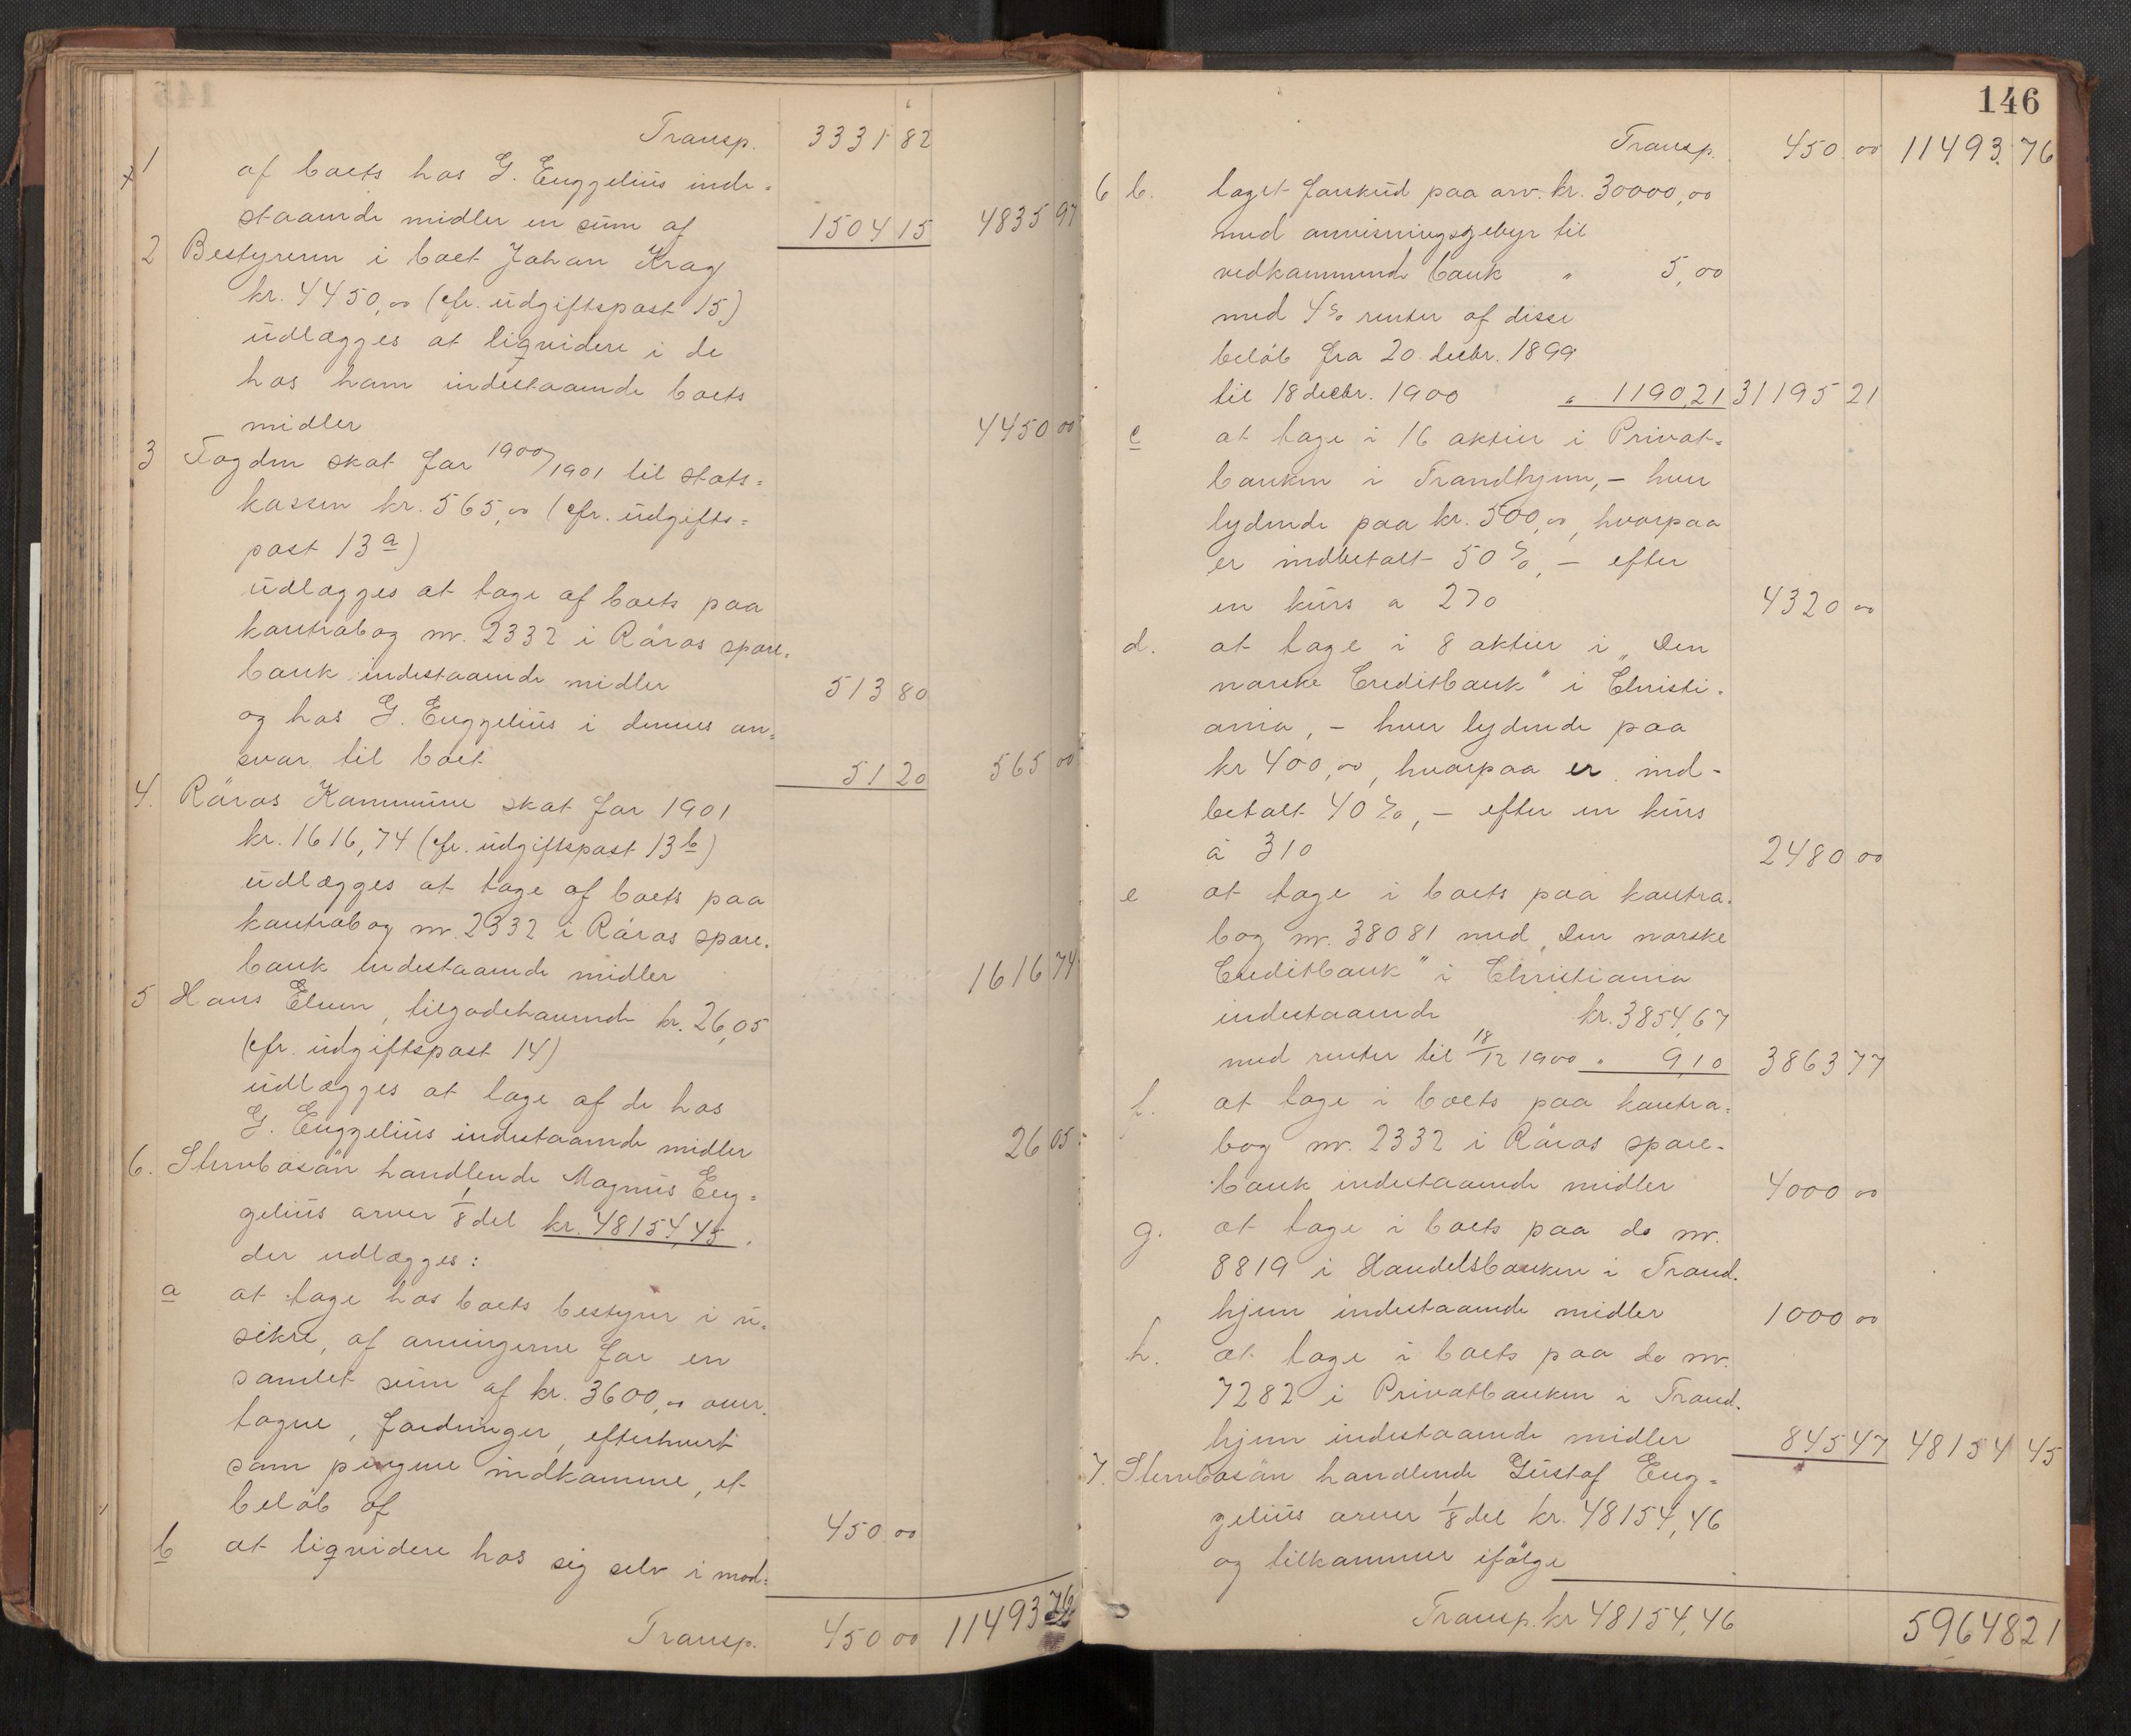 Transp. 3331 82
1 af boets hos G. Enggelius inde=
staaende midler en sum af 1504 15 4835 97
2 Bestyreren i boet Johan Krag
kr. 4450,00 (cfr. udgiftspost 15)
udlægges at liqvidere i de
hos ham indestaaende boets
midler 4450 00
3 Fogden skat for 1900/1901 til stats=
kassen kr. 565,00 (cfr. udgifts=
post 13 a)
udlægges at tage af boets paa
kontrabog nr. 2332 i Röros spare=
bank indestaaende midler 513 80
og hos G. Enggelius i dennes an=
svar til boet 51 20 565 00
4. Röros Kommune skat for 1901
kr. 1616,74 (cfr. udgiftspost 13 b)
udlægges at tage af boets paa
kontrabog nr. 2332 i Röros spare=
bank indestaaende midler 1616 74
5 Hans Elven, tilgodehavende kr. 26,05
(cfr. udgiftspost 14)
udlægges at tage af de hos
G. Enggelius indestaaende midler 26 05
6. Stervbosön handlende Magnus Eng=
gelius arver 1/8 del kr. 48154,45.
der udlægges:
a at tage hos boets bestyrer i u=
sikre, af arvingerne for en
samlet sum af kr. 3600,00 over=
tagne, fordringer, efterhvert
som pengene indkomme, et
belöb af 450 00
b at liqvidere hos sig selv i mod=
Transp. 450 00 11493 76
146
Transp. 450 00 11493. 76
6 b. taget forskud paa arv kr. 30000,00
med anvisningsgebyr til
vedkommende bank " 5,00
med 4% renter af disse
belöb fra 20 decbr. 1899
til 18 decbr. 1900 " 1190,21 31195 21
c at tage i 16 aktier i Privat=
banken i Trondhjem, – hver
lydende paa kr. 500,00, hvorpaa
er indbetalt 50%, – efter
en kurs a 270 4320 00
d. at tage i 8 aktier i „Den
norske Creditbank" i Christi=
ania, – hver lydende paa
kr 400,00, hvorpaa er ind-
betalt 40%, – efter en kurs
á 310 2480 00
e at tage i boets paa kontra=
bog nr. 38081 med „Den norske
Creditbank" i Christiania
indestaaende kr. 3854,67
med renter til 18/12 1900 " 9,10 3863 77
f. at tage i boets paa kontra=
bog nr. 2332 i Röros spare-
bank indestaaende midler 4000 00
g. at tage i boets paa do nr.
8819 i Handelsbanken i Trond=
hjem indestaaende midler 1000 00
h. at tage i boets paa do nr.
7282 i Privatbanken i Trond=
hjem indestaaende midler 845 47 48154 45
7. Stervbosön handlende Gustaf Eng=
gelius arver 1/8 del kr. 48154,46
og tilkommer ifölge
Transp. kr 48154,46 59648 21